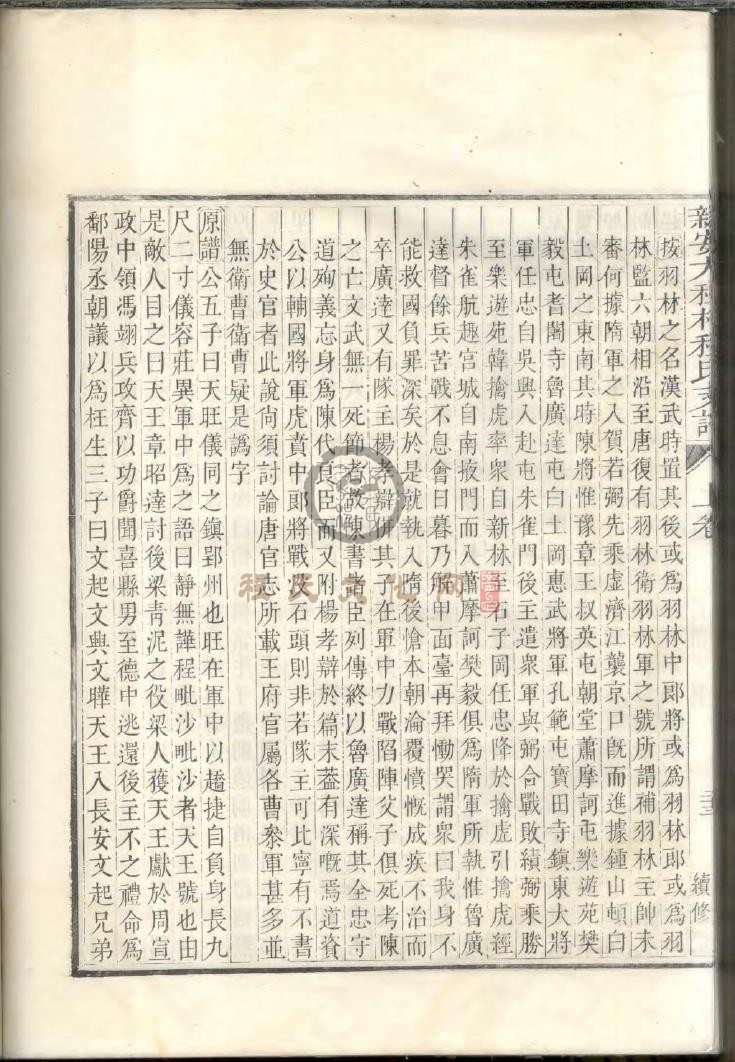 新安大程村程氏支譜 上卷 續修
按羽林之名漢武時置其後或爲羽林中郎將或爲羽林郎或爲羽
林監六朝相沿至唐復有羽林衛羽林軍之號所謂補羽林主帥未
審何據隋軍之入賀若弼先乘虛濟江襲京口旣而進據鍾山頓白
土岡之東南其時陳將惟豫章王叔英屯朝堂蕭摩訶屯樂遊苑樊
毅屯耆闍寺魯廣達屯白土岡惠武將軍孔範屯寶田寺鎮東大將
軍任忠自吳興入赴屯朱雀門後主遣眾軍與弼合戰敗績弼乘勝
至樂遊苑韓擒虎率眾自新林至石子岡任忠降於擒虎引擒虎經
朱雀航趣宮城自南掖門而入蕭摩訶樊毅俱爲隋軍所執惟魯廣
達督餘兵苦戰不息會日暮乃解甲面臺再拜慟哭謂眾曰我身不
能救國負罪深矣於是就執入隋後愴本朝淪覆憤慨成疾不治而
卒廣達又有隊主楊孝辯併其子在軍中力戰陷陣父子俱死考陳
之亡文武無一死節者故陳書諸臣列傳終以魯廣達稱其全忠守
道殉義忘身爲陳代良臣而又附楊孝辯於篇末葢有深嘅焉道資
公以輔國將軍虎賁中郎將戰沒石頭則非若隊主可比寧有不書
於史官者此說尙須討論唐官志所載王府官屬各曹叅軍甚多並
無衛曹衛曹疑是譌字
原譜公五子曰天旺儀同之鎮郢州也旺在軍中以趫捷自負身長九
尺二寸儀容莊異軍中爲之語曰靜無譁程毗沙毗沙者天王號也由
是敵人目之曰天王章昭達討後梁靑泥之役梁人獲天王獻於周宣
政中領馮翊兵攻齊以功爵聞喜縣男至德中逃還後主不之禮命爲
鄱陽丞朝議以爲枉生三子曰文起文興文曄天王入長安文起兄弟
程氏文化网